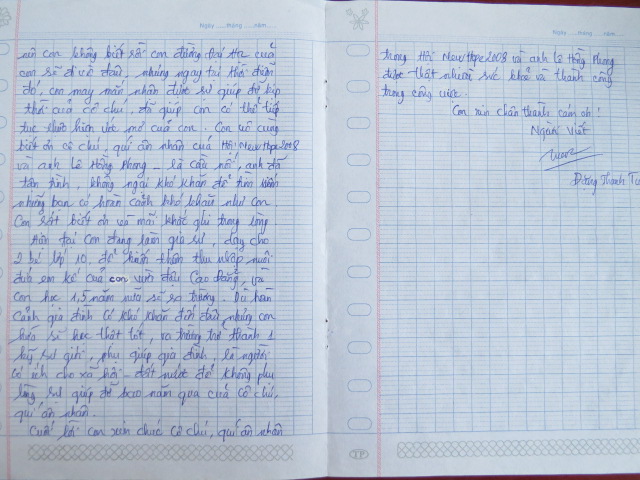 Ngày ..... tháng ..... năm.....
nên con không biết rồi con đường Đại Học của
con sẽ đi về đâu, nhưng ngay tại thời điểm
đó, con may mắn nhận được sự giúp đỡ kịp
thời của cô chú, đã giúp con có thể tiếp
tục thực hiện ước mơ của con. Con vô cùng
biết ơn cô chú, quí ân nhân của Hội NewHope2008
và anh Lê Hồng Phong - là cầu nối, anh đã
tận tình, không ngại khó khăn để tìm kiếm
những bạn có hoàn cảnh khó khăn như con.
Con rất biết ơn và mãi khắc ghi trong lòng.
Hiện tại con đang làm gia sư, dạy cho
2 bé lớp 10, để kiếm thêm thu nhập nuôi
đứa em kế của con vừa đậu Cao Đẳng, và
con học 1,5 năm nữa sẽ ra trường. Dù hoàn
cảnh gia đình có khó khăn đến đâu nhưng con
hứa sẽ học thật tốt, ra trường trở thành 1
kỹ sư giỏi, phụ giúp gia đình, là người
có ích cho xã hội - đất nước để không phụ
lòng sự giúp đỡ bao năm qua của cô chú,
quí ân nhân.
Cuối lời con xin chúc cô chú, quí ân nhân
Ngày ..... tháng ..... năm.....
trong Hội NewHope2008 và anh Lê Hồng Phong
được thật nhiều sức khoẻ và thành công
trong công việc.
Con xin chân thành cám ơn!
Người Viết
Đặng Thanh
TP